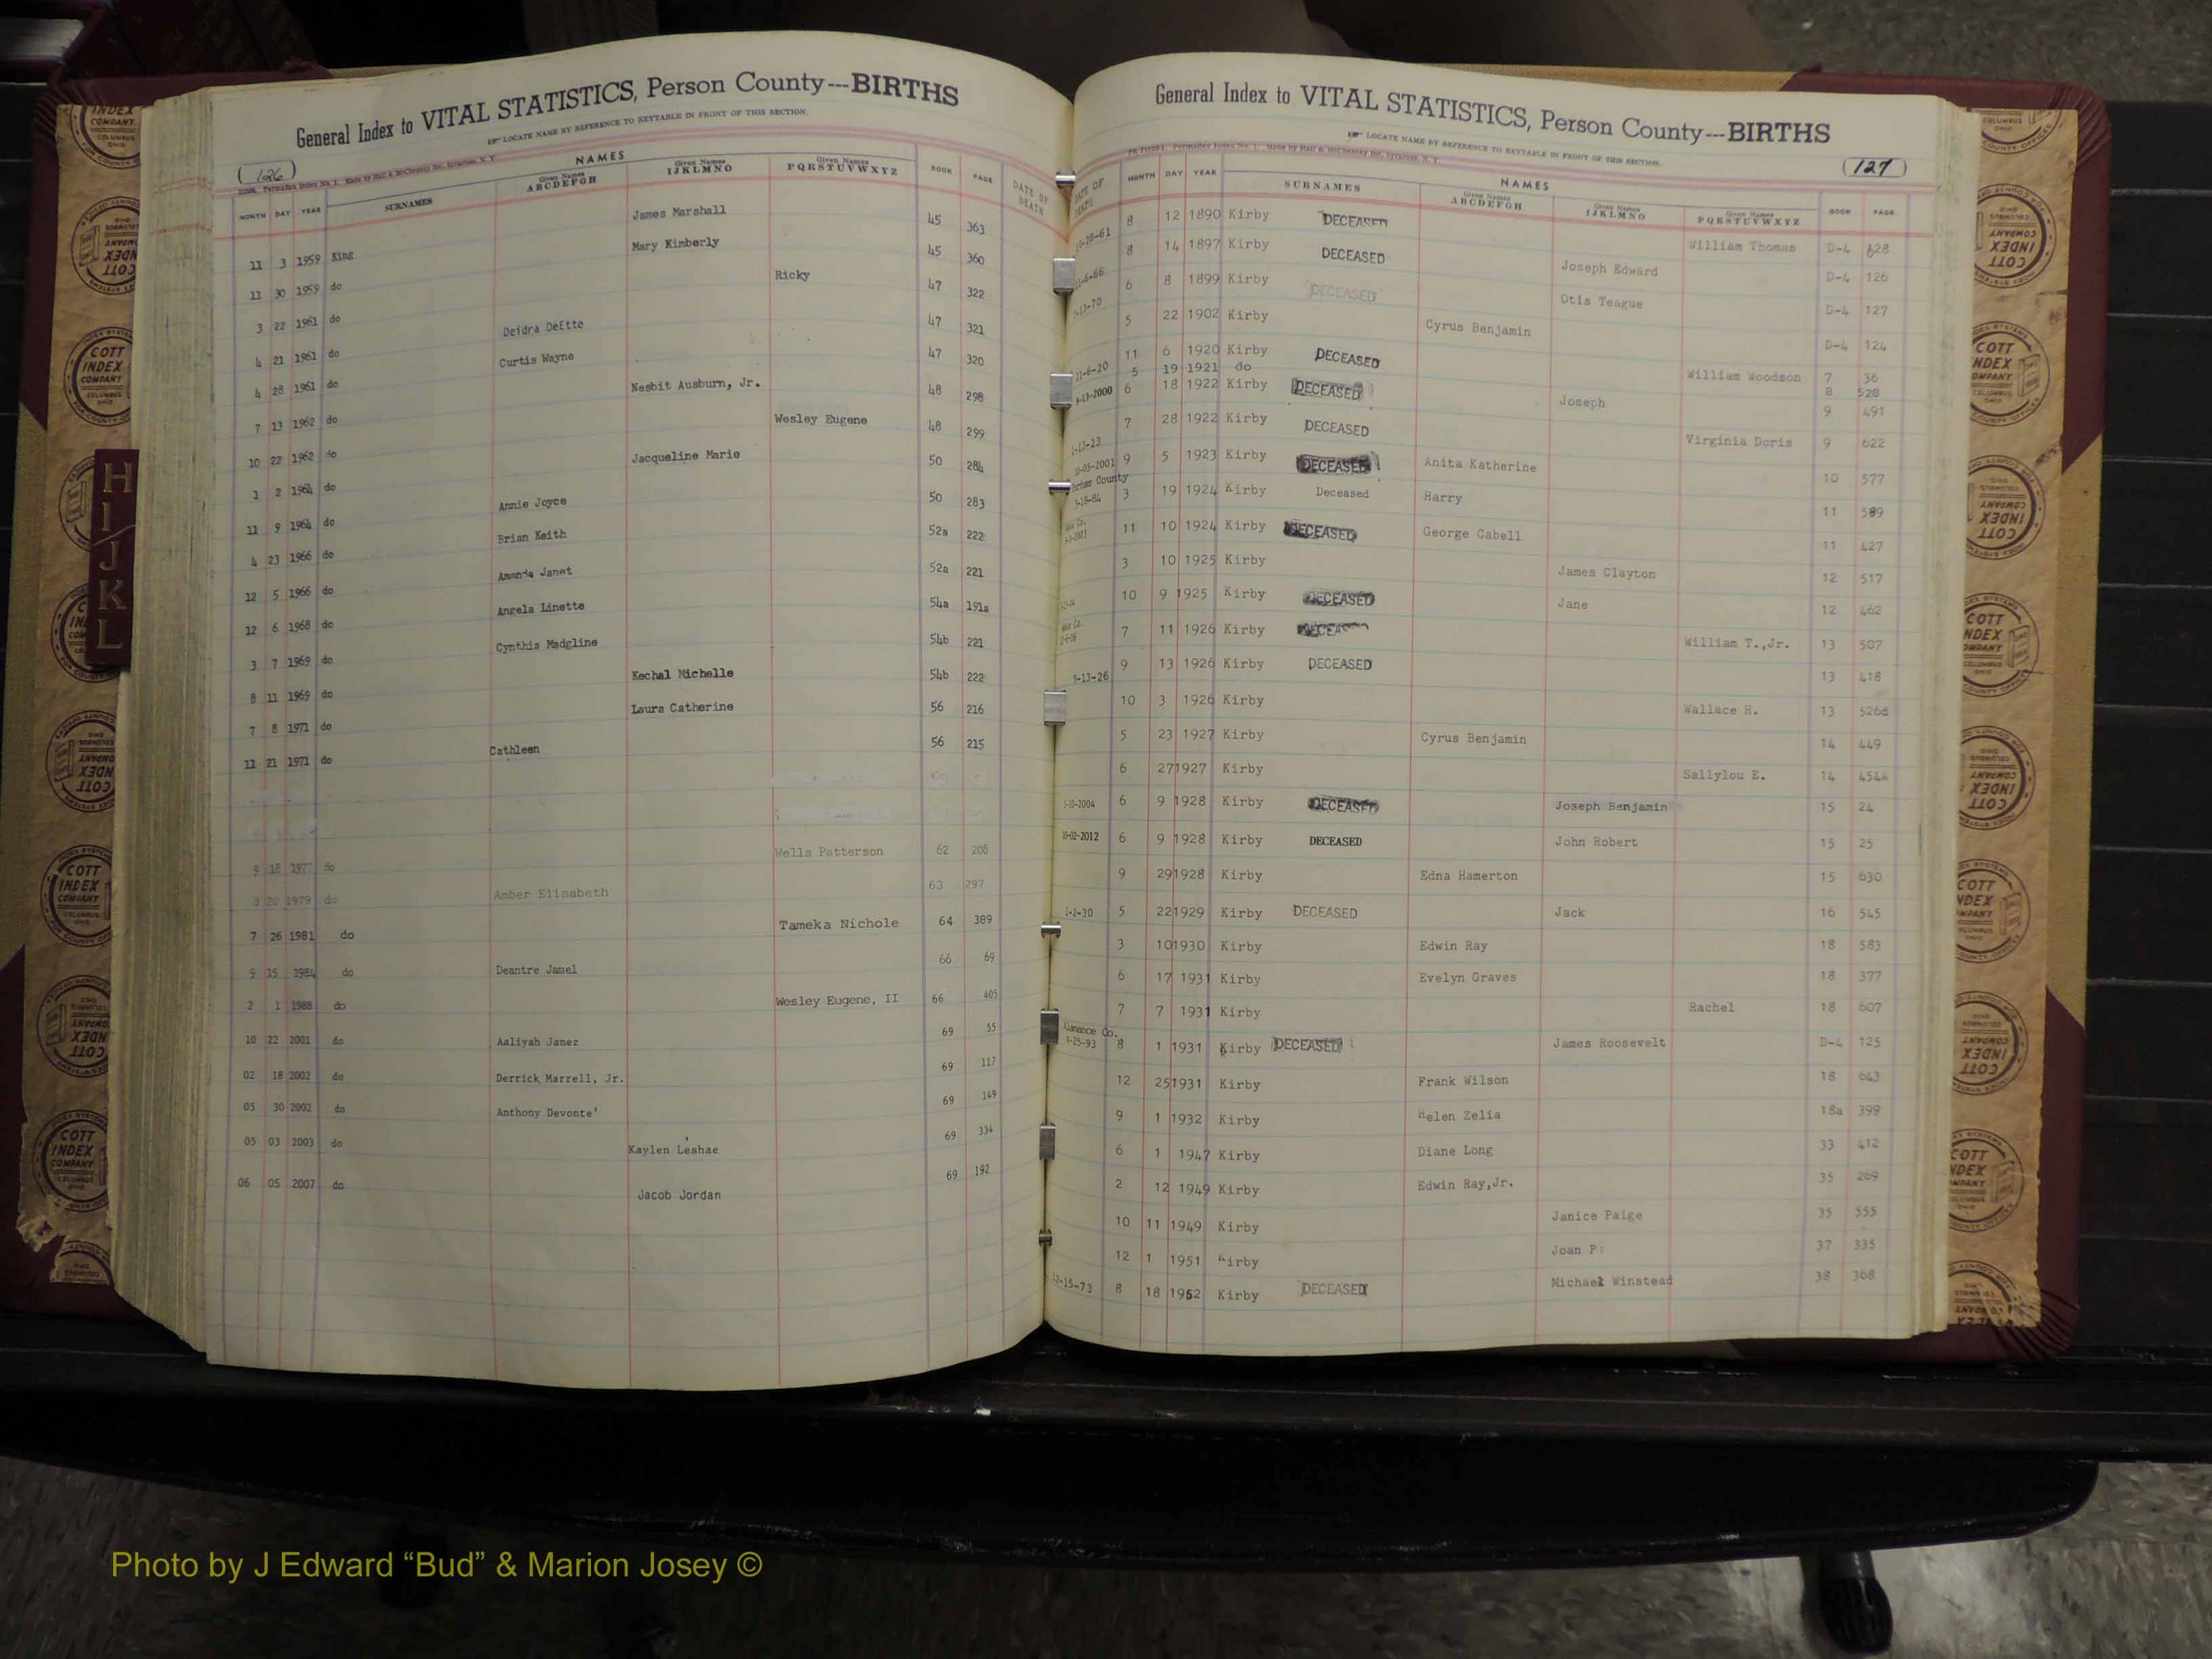 General Index to VITAL STATISTICS, Person County---BIRTHS
LOCATE NAME BY REFERENCE TO KEYTABLE IN FRONT OF THIS SECTION.
126
NAMES
MONTH DAY YEAR SURNAMES Given Names ABCDEFGH Given Names IJKLMNO Given Names PQRSTUVWXYZ BOOK PAGE DATE OF DEATH
11 3 1959 King James Marshall 45 363
11 30 1959 do Mary Kimberly 45 360
3 22 1961 do Ricky 47 322
4 21 1961 do Deidra DeEtte 47 321
4 28 1961 do Curtis Wayne 47 320
7 13 1962 do Nesbit Ausburn, Jr. 48 298
10 22 1962 do Wesley Eugene 48 299
1 2 1964 do Jacqueline Marie 50 284
11 9 1964 do Annie Joyce 50 283
4 23 1966 do Brian Keith 52a 222
12 5 1966 do Amanda Janet 52a 221
12 6 1968 do Angela Linette 54a 191a
3 7 1969 do Cynthia Madgline 54b 221
8 11 1969 do Kechal Michelle 54b 222
7 8 1971 do Laura Catherine 56 216
11 21 1971 do Cathleen 56 215
9 18 1977 do Wells Patterson 62 208
3 20 1979 do Amber Elisabeth 63 297
7 26 1981 do Tameka Nichole 64 389
9 15 1984 do Deantre Jamel 66 69
2 1 1988 do Wesley Eugene, II 66 405
10 22 2001 do Aaliyah Janez 69 55
02 18 2002 do Derrick Marrell, Jr. 69 117
05 30 2002 do Anthony Devonte' 69 149
05 03 2003 do Kaylen Leshae 69 334
06 05 2007 do Jacob Jordan 69 192
General Index to VITAL STATISTICS, Person County---BIRTHS
LOCATE NAME BY REFERENCE TO KEYTABLE IN FRONT OF THIS SECTION.
127
NAMES
DATE OF DEATH MONTH DAY YEAR SURNAMES Given Names ABCDEFGH Given Names IJKLMNO Given Names PQRSTUVWXYZ BOOK PAGE
8 12 1890 Kirby DECEASED William Thomas D-4 128
8 14 1897 Kirby DECEASED Joseph Edward D-4 126
6 8 1899 Kirby DECEASED Otis Teague D-4 127
5 22 1902 Kirby Cyrus Benjamin D-4 124
11-6-20 11 6 1920 Kirby DECEASED William Woodson 7 36
5 19 1921 do 8 528
6 18 1922 Kirby DECEASED Joseph 9 491
7 28 1922 Kirby DECEASED Virginia Doris 9 622
9 5 1923 Kirby DECEASED Anita Katherine 10 577
3 19 1924 Kirby Deceased Harry 11 589
11 10 1924 Kirby DECEASED George Cabell 11 427
3 10 1925 Kirby James Clayton 12 517
10 9 1925 Kirby DECEASED Jane 12 462
7 11 1926 Kirby William T.,Jr. 13 507
9-13-26 9 13 1926 Kirby DECEASED 13 418
10 3 1926 Kirby Wallace H. 13 526d
5 23 1927 Kirby Cyrus Benjamin 14 449
6 27 1927 Kirby Sallylou E. 14 454A
6 9 1928 Kirby DECEASED Joseph Benjamin 15 24
10-02-2012 6 9 1928 Kirby DECEASED John Robert 15 25
9 29 1928 Kirby Edna Hamerton 15 630
1-2-30 5 22 1929 Kirby DECEASED Jack 16 545
3 10 1930 Kirby Edwin Ray 18 583
6 17 1931 Kirby Evelyn Graves 18 377
7 7 1931 Kirby Rachel 18 607
Alamance Co.
8 1 1931 Kirby DECEASED James Roosevelt D-4 125
12 25 1931 Kirby Frank Wilson 18 643
9 1 1932 Kirby Helen Zelia 18a 399
6 1 1947 Kirby Diane Long 33 412
2 12 1949 Kirby Edwin Ray,Jr. 35 269
10 11 1949 Kirby Janice Paige 35 555
12 1 1951 Kirby Joan P. 37 335
8 18 1952 Kirby DECEASED Michael Winstead 38 368
H
I
J
K
L
COTT INDEX COMPANY COLUMBUS OHIO
Photo by J Edward “Bud” & Marion Josey ©